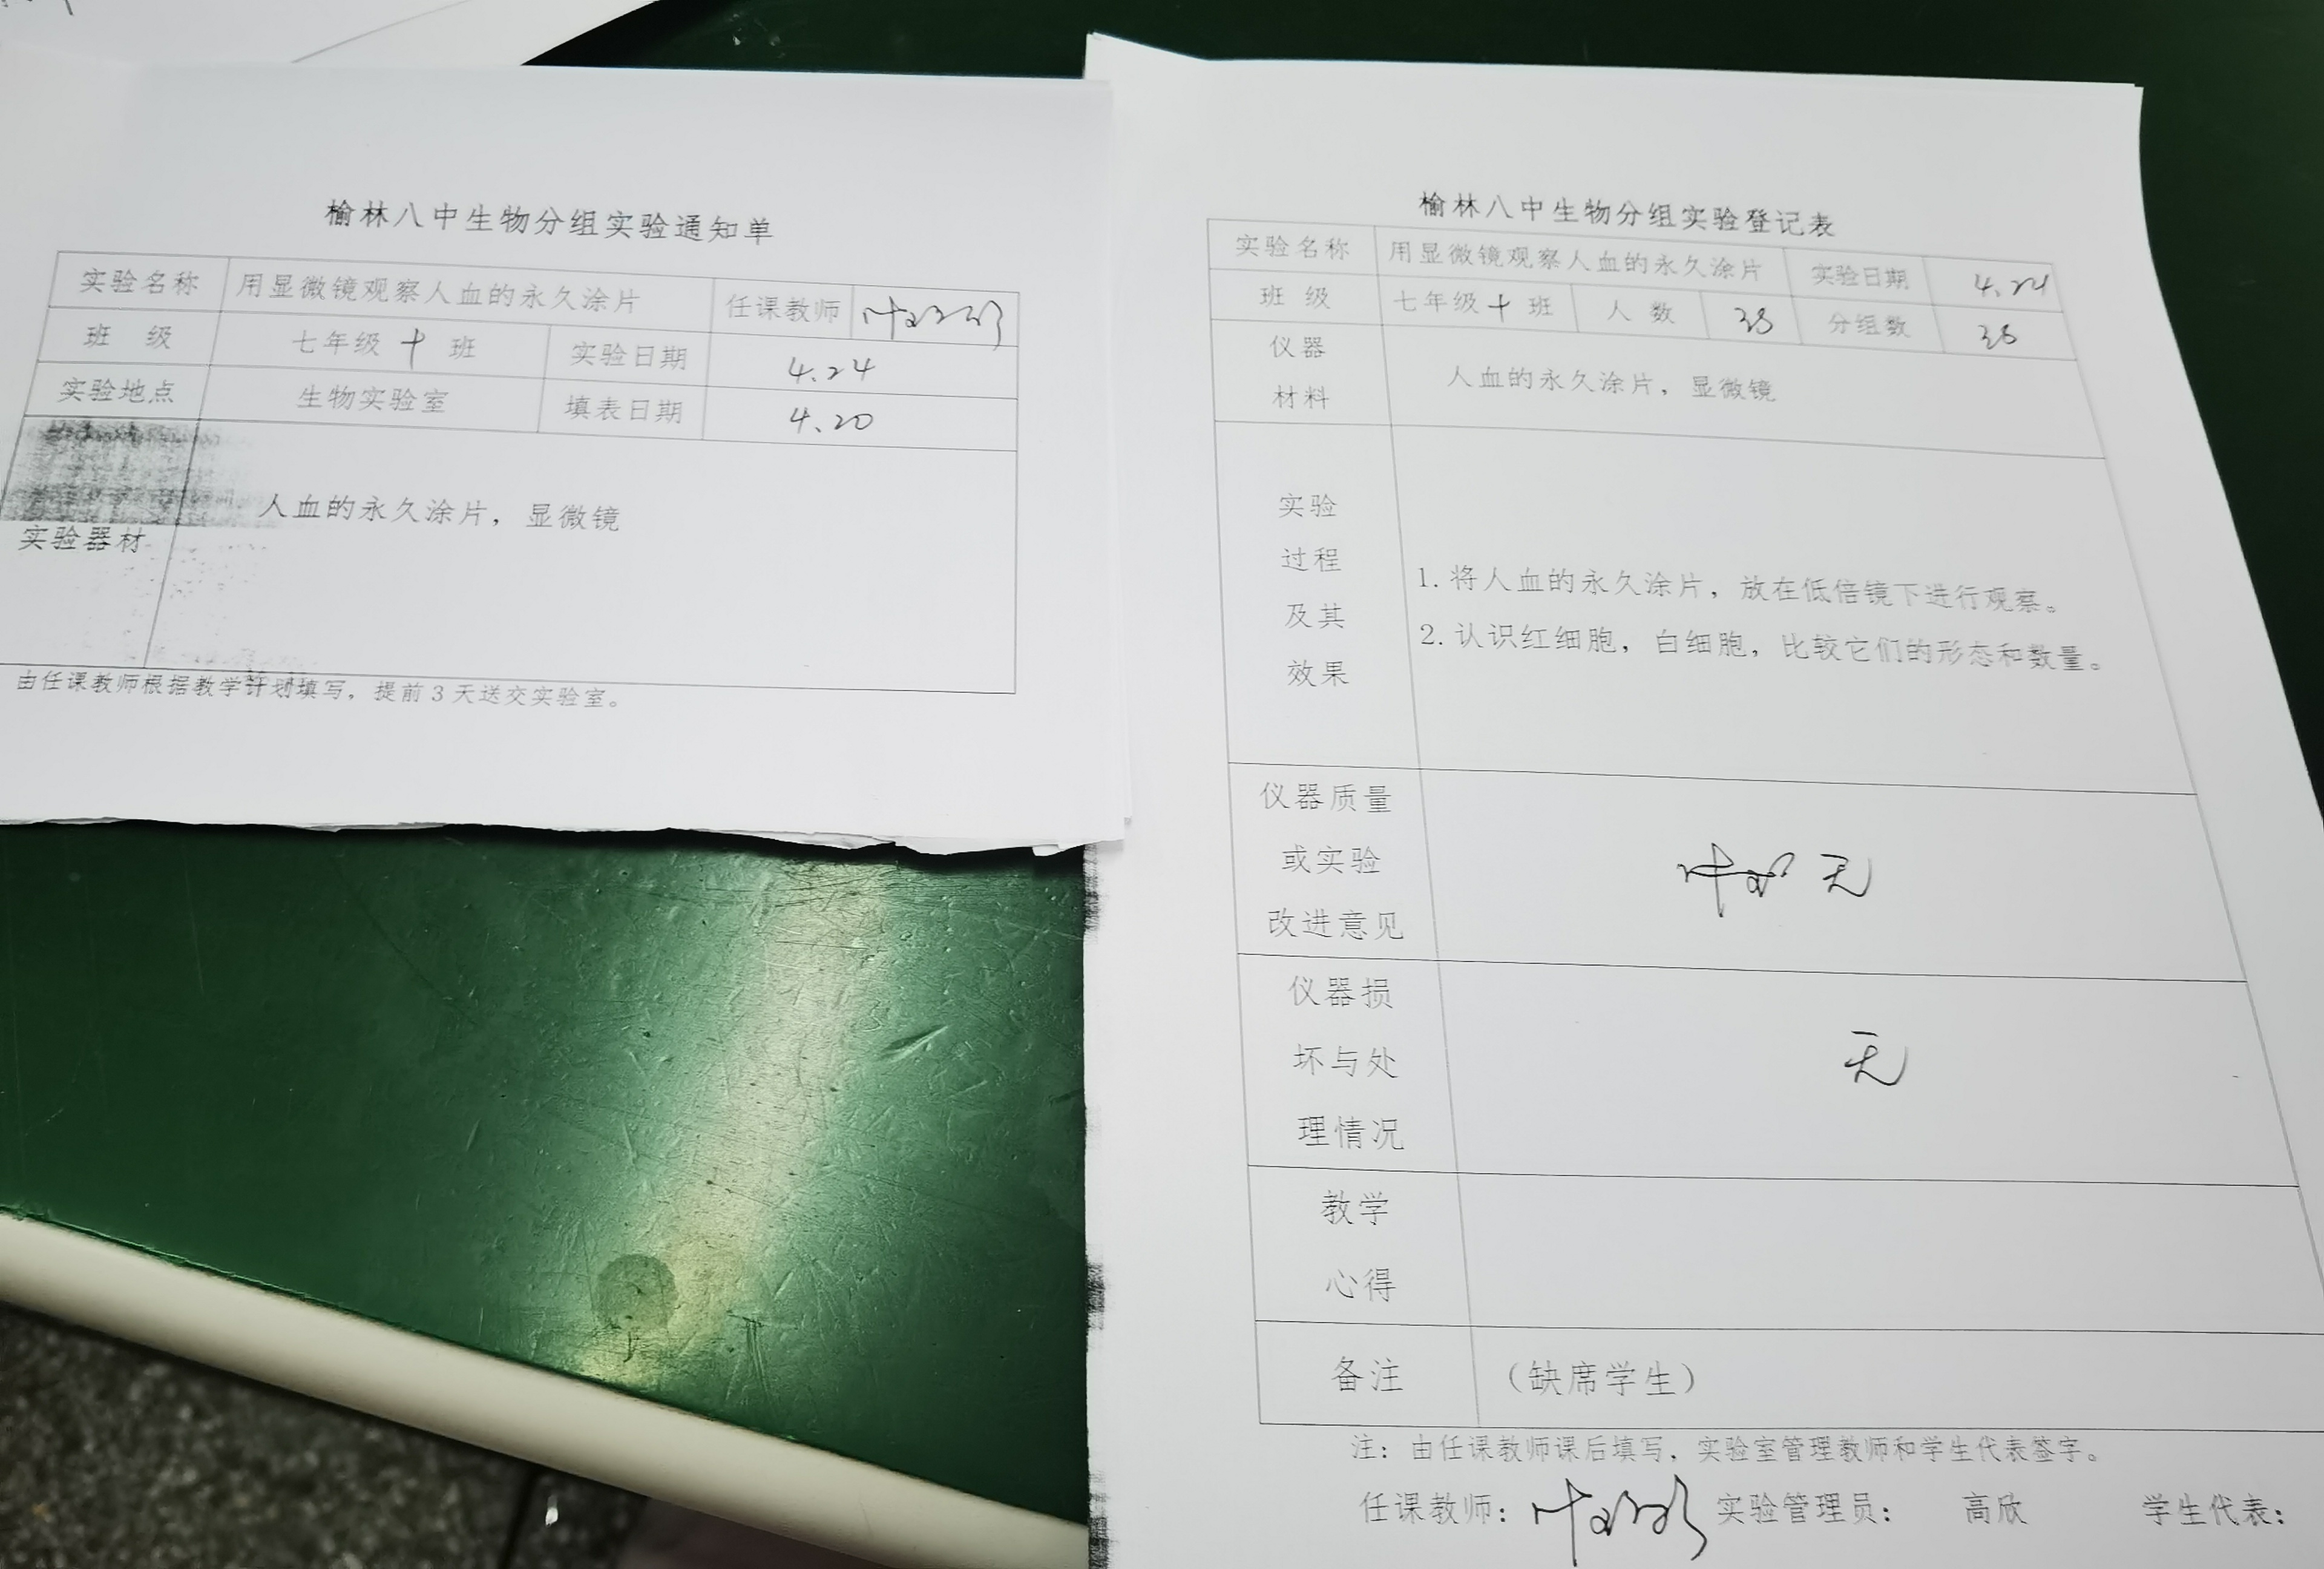 榆林八中生物分组实验通知单
实验名称 用显微镜观察人血的永久涂片 任课教师
班 级 七年级十班 实验日期 4.24
实验地点 生物实验室 填表日期 4.20
实验器材 人血的永久涂片，显微镜
由任课教师根据教学计划填写，提前3天送交实验室。
榆林八中生物分组实验登记表
实验名称 用显微镜观察人血的永久涂片 实验日期 4.24
班 级 七年级十班 人 数 38 分组数 38
仪器
材料
人血的永久涂片，显微镜
实验
过程
及其
效果
1. 将人血的永久涂片，放在低倍镜下进行观察。
2. 认识红细胞，白细胞，比较它们的形态和数量。
仪器质量
或实验
改进意见
无
仪器损
坏与处
理情况
无
教学
心得
备注 （缺席学生）
注：由任课教师课后填写，实验室管理教师和学生代表签字。
任课教师： 实验管理员： 高欣 学生代表：